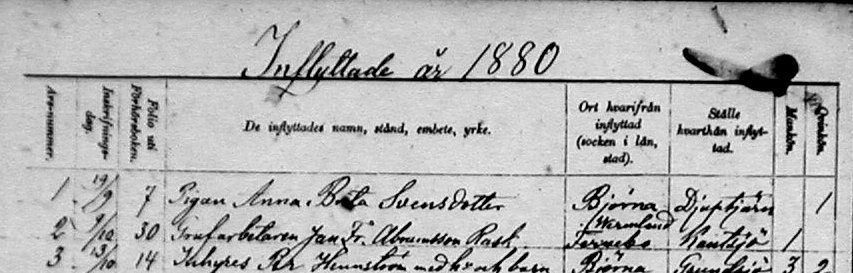 Inflyttade år 1880
Års-nummer. Inskrifnings-dag. Folio uti Förhörsboken. De inflyttades namn, stånd, embete, yrke. Ort hvarifrån inflyttad (socken i län, stad). Ställe hvarthän inflyttad. Mankön. Qvinkön.
1. 19/9 7 Pigan Anna Brita Svensdotter Björna Djuptjärn 1
2 9/10 30 Grufarbetaren Jan Fr. Abramsson Rask Wermland Fernebo 1
3 13/10 14 med barn Björna 2